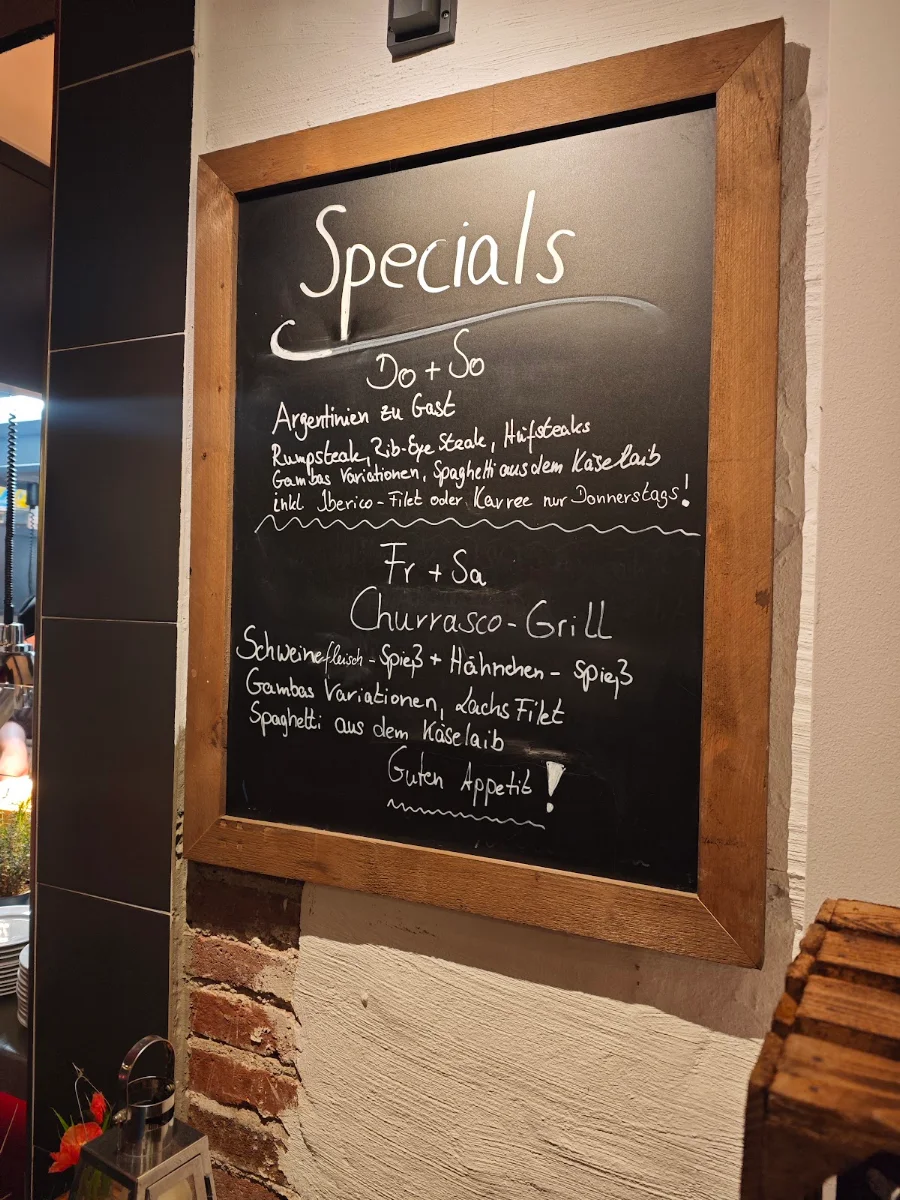 Specials
Do + So
Argentinien zu Gast
Rumpsteak, Rib-Eye Steak, Hüfsteaks
Gambas Variationen, Spaghetti aus dem Käselaib
inkl Iberico - Filet oder Karree nur Donnerstags!
Fr + Sa
Churrasco - Grill
Schweinefleisch - Spieß + Hähnchen - Spieß
Gambas Variationen, Lachs Filet
Spaghetti aus dem Käselaib
Guten Appetit!